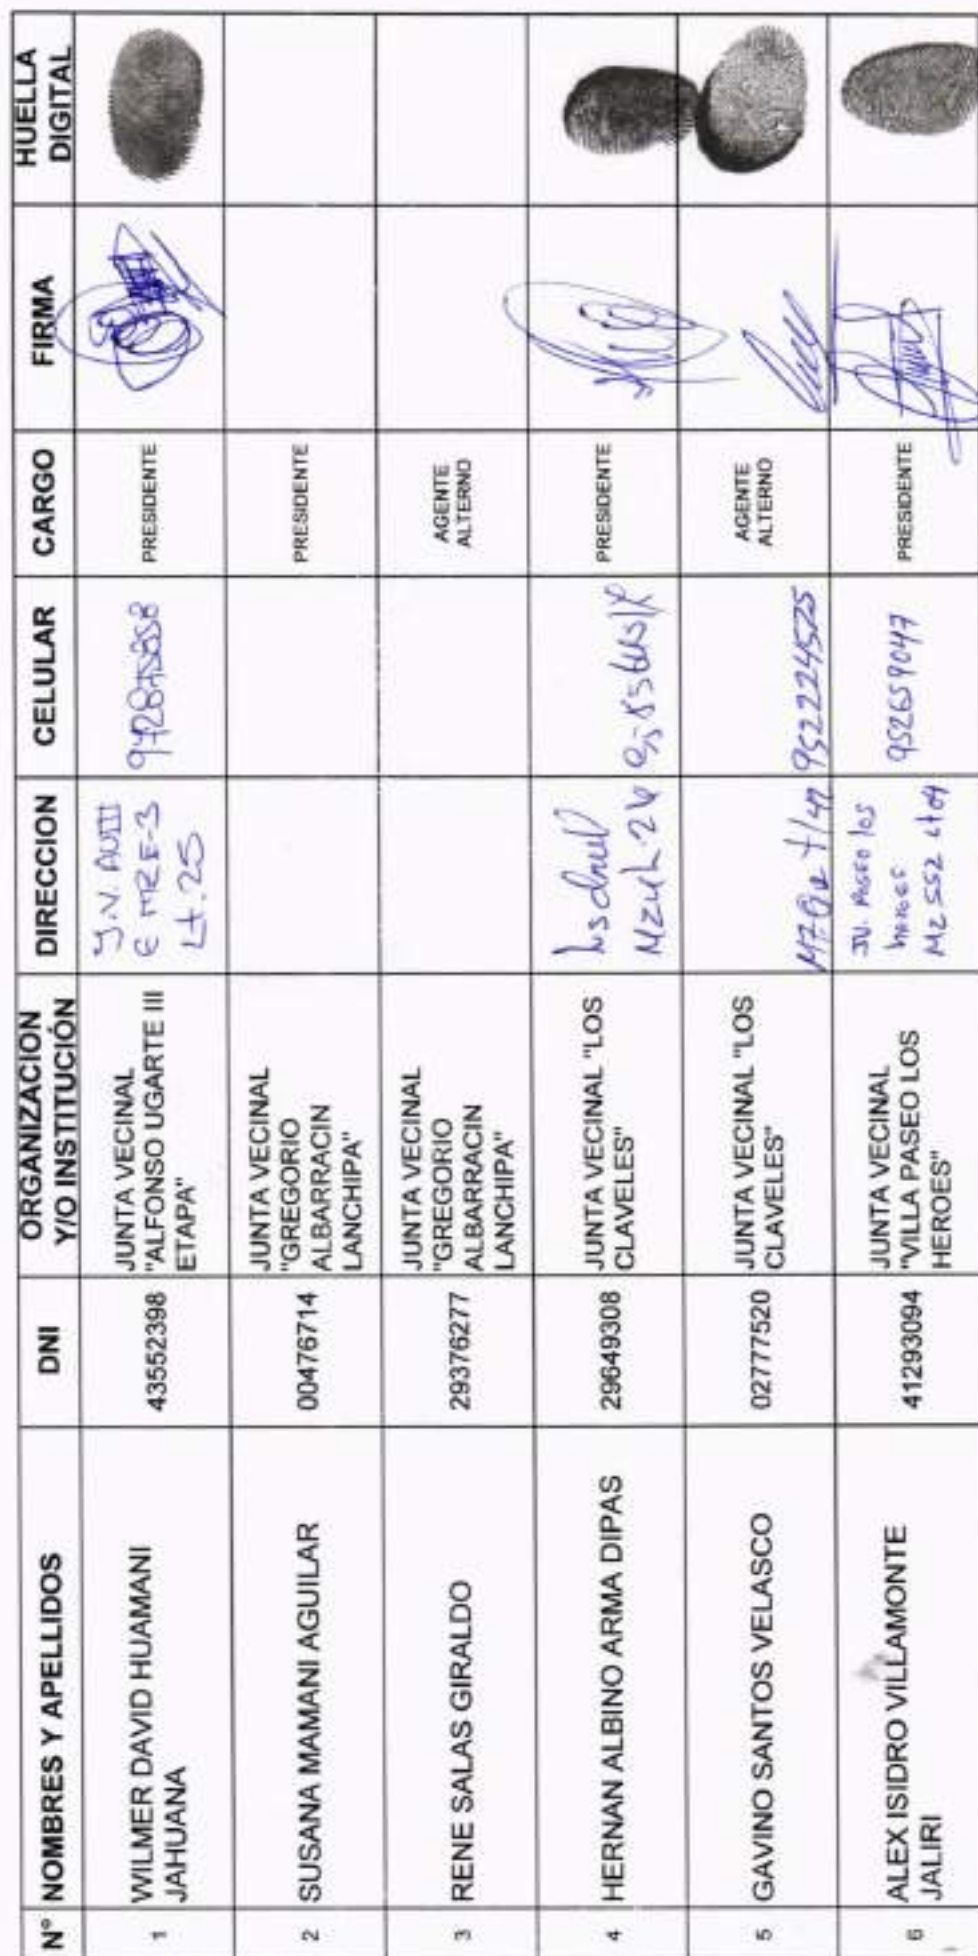 N° NOMBRES Y APELLIDOS DNI ORGANIZACION Y/O INSTITUCIÓN DIRECCION CELULAR CARGO FIRMA HUELLA DIGITAL
1 WILMER DAVID HUAMANI
JAHUANA
43552398
JUNTA VECINAL
"ALFONSO UGARTE III
ETAPA"
J.V. AUIII
E-3
Lt. 25
PRESIDENTE
2 SUSANA MAMANI AGUILAR
00476714
JUNTA VECINAL
"GREGORIO
ALBARRACIN
LANCHIPA"
PRESIDENTE
3 RENE SALAS GIRALDO
29376277
JUNTA VECINAL
"GREGORIO
ALBARRACIN
LANCHIPA"
AGENTE
ALTERNO
4 HERNAN ALBINO ARMA DIPAS
29649308
JUNTA VECINAL "LOS
CLAVELES"
PRESIDENTE
5 GAVINO SANTOS VELASCO
02777520
JUNTA VECINAL "LOS
CLAVELES"
952224525
AGENTE
ALTERNO
6 ALEX ISIDRO VILLAMONTE
JALIRI
41293094
JUNTA VECINAL
"VILLA PASEO LOS
HEROES"
JV. Paseo los
heroes
Mz 552 Lt 09
952659047
PRESIDENTE